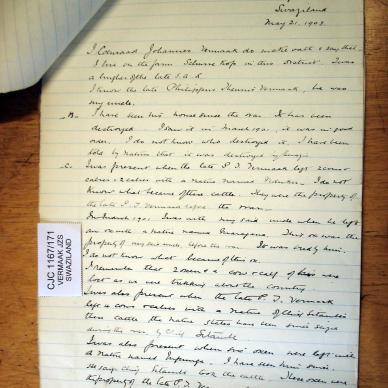 Swaziland
May 21. 1903.
I Coenraad Johannes Vermaak do make oath & say that
I live on the farm in this district. I was
a burgher of the late S.A.R.
I know the late Philippus Vermaak, he was
my uncle.
B. I have seen his house since the war. It has been
destroyed. I saw it in March 1901, it was in good
order. I do not know who destroyed it. I have been
told by natives that it was destroyed by
C. I was present when the late P. J. Vermaak left 2 cows
calves & 2 calves with a native named I do not
know what became of these cattle. They were the property of
the late P. J. Vermaak before the war.
In March 1901 I was with my said uncle when he left
an ox with a native named This ox was the
property of my said uncle before the war. It was bred by him.
I do not know what became of this ox.
I remember that 2 oxen & a cow & calf of his were
lost as we were trekking about the country.
I was also present when the late P. J. Vermaak
left cows & calves with a native of Chief
these cattle the native states has been since seized
during the war by Chief
I was also present when oxen were left with
a native named I have seen him since.
He says Chief took the cattle. These oxen were
the property of the late P. J.
CJC 1167/171
VERMAAK JZS
SWAZILAND